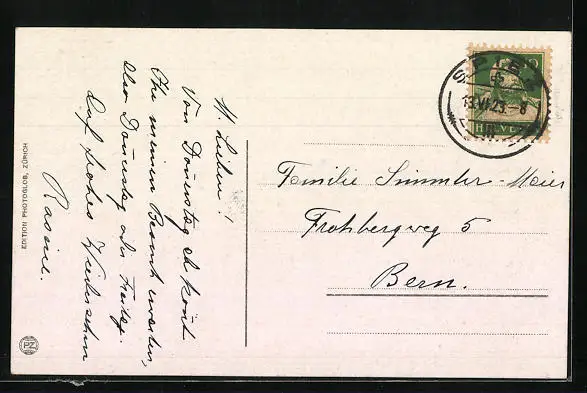 M. Lieben!
Von Donnerstag ab könnt
Ihr meinen Besuch erwarten,
aber Donnerstag oder Freitag.
Auf frohes Wiedersehn
Familie Simmler-Meier
Frohbergweg 5
Bern.
13.VI.23.-8
HELVETIA
EDITION PHOTOGLOB, ZÜRICH
PZ